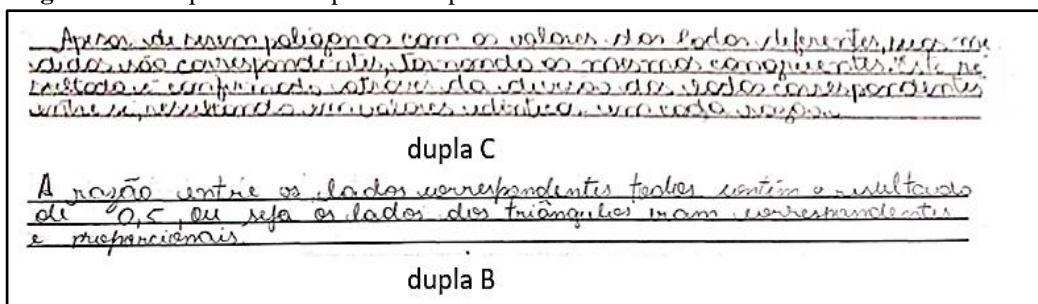 Apesar de serem poligonos com os valores dos lados deferentes, suas me
didas são correspondentes, tornando os mesmos congruentes. Este re
sultado é confirmado através da divisão dos lados correspondentes
entre si, resultando em valores idêntico, em cada razão.
dupla C
A razão entre os lados correspondentes todos contém o resultado
de 0,5, ou seja os lados dos triângulos eram correspondentes
e proporcionais.
dupla B